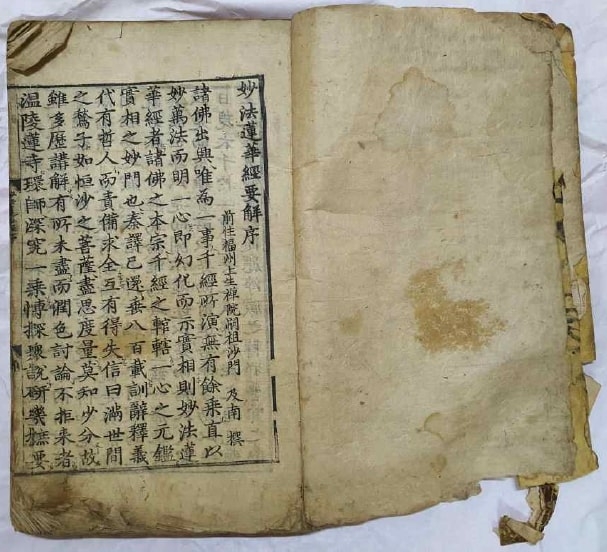 妙法蓮華經要解序
前住福州上生禪院嗣祖沙門 及南 撰
諸佛出興唯爲一事千經所演無有餘乘直以
妙萬法而明一心即幻化而示實相則妙法蓮
華經者諸佛之本宗千經之輨轄一心之元鑑
實相之妙門也秦譯已還垂八百載訓辭釋義
代有哲人而責備求全互有得失信曰滿世間
之鶖子如恒沙之菩薩盡思度量莫知少分故
雖多歷講解有所未盡而潤色討論不拒來者
温陵蓮寺環師深究一乘愽探衆說研幾摭要